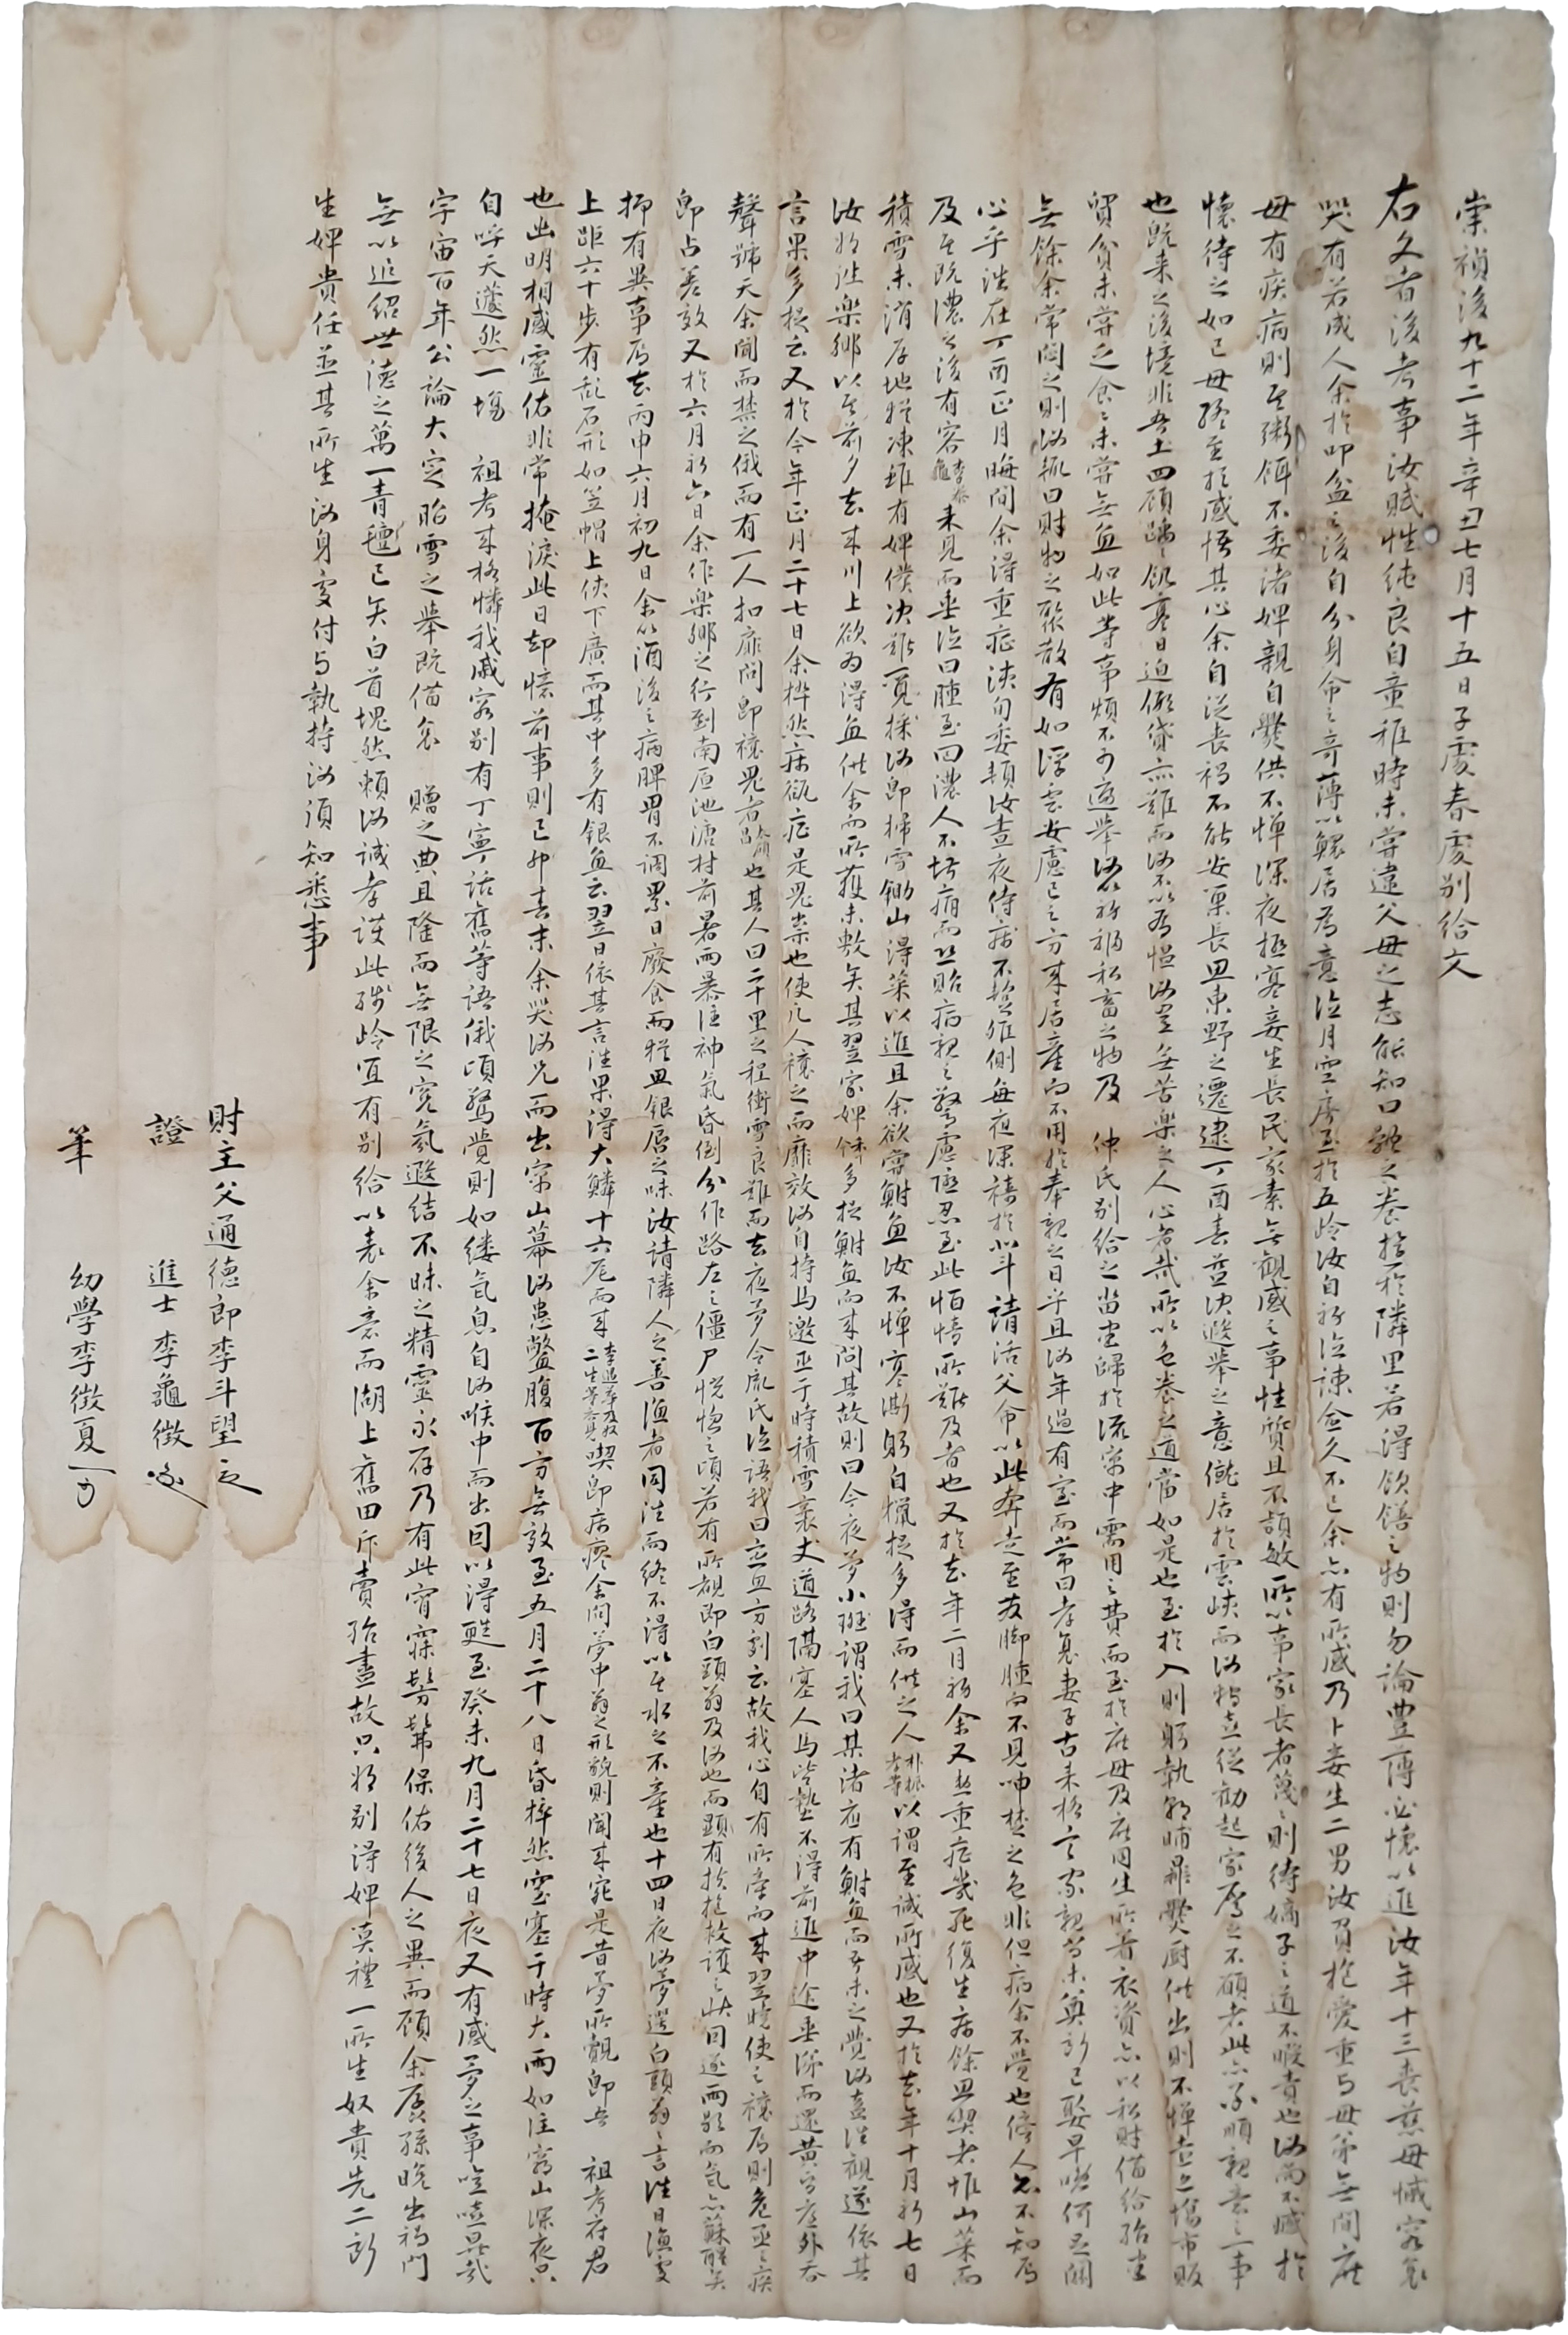 崇禎後九十二年辛丑七月十五日子處春處別給文
右文者後考事汝賦性純良自童稚時未嘗違父母之志能知口體之養於隣里若得飲饍之物則勿論豊薄必懷以進汝年十三喪慈母慽容哀
哭有若成人余於叩盆之後自分身命之奇薄以鰥居爲意泣月空房至於五岭汝自初泣諫愈久不已余亦有所感乃卜妾生二男汝負抱愛重与母弟無間庶
母有疾病則至粥餌不委諸婢親自爨供不憚深夜極寒妾生長民家素無觀感之事性質且不頴敏所以事家長者蔑之則待嫡子之道不暇責也汝而不慽於
懷待之如己母終至於感悟其心余自從喪禍不能安巢長思東野之遷逮丁酉春益决遯擧之意僦居於雲峽而汝獨立從勸起家屬之不願者此亦承順親意之一事
也旣來之後境非吾土四顧踽踽飢寒日迫假貸亦難而汝不以爲慍汝豈無苦樂之人心者哉所以色養之道當如是也至於入則躬執朝晡親爨厨供出則不憚壺亞場市販
貿貧未嘗乏食食未嘗無魚如此等事煩不可盡擧汝以初婚私畜之物及 仲氏別給之畓畓歸於流窮中需用之費而至於庶母及庶同生所着衣資亦以私財備給殆盡
無餘余常悶之則汝輒曰財物之聚散有如浮雲安慮已之方來居產而不用於奉親之日乎且汝年過有室而常曰孝衰妻子古來格言家親尚未奠新己娶早晩何足關
心乎往在丁酉正月晦間余得重症浹旬委頓汝晝夜侍病不離側每夜深禱於北斗請活父命以此奔走至茇脚腫而不見呻楚之色非但病余不覺也傍人亦不知焉
及至旣濃之後有客李春龜來見而垂泣曰腫至回濃人不堪痛而恐貽病親之驚慮隱忍至此怕情所難及者也又於去年二月初余又患重症幾死復生病餘思喫者惟山菜而
積雪未消厚地猶凍雖有婢僕决難覓採汝即掃雪鋤山得菜以進且余欲嘗鮒魚汝不憚寒凘躬自獵捉多得而供之人朴振孝等以謂至誠所感也又於去年十月初七日
汝將往樂鄉以至前夕去來川上欲爲得魚供余而所獲未敷矣其翌家婢侔多捉鮒魚而來問其故則曰今夜夢小斑謂我曰某渚應有鮒魚而吾未之覺汝盍往觀遂依其
言果多捉云又於今年正月二十七日余猝然病瓻症是鬼祟也使凡人禳之而靡效汝自持馬邀巫于時積雪袤丈道路隔塞人馬皆墊不得前進中途垂涕而還黃昏庭外吞
聲號天余聞而禁之俄而有一人扣扉問即禳鬼者俞順昌也其人曰二十里之程衝雪良難而去夜夢令胤氏泣語我曰亟思方到云故我心自有所牽而來翌曉使之禳焉則危亟之疾
即占差效又於六月初六日余作樂鄉之行到南原池溏村前暑雨暴注神氣昏倒分作路左之僵尸恍惚之頃若有所覩即白頭翁及汝也而顯有扶抱救護之狀因遂雨歇而氣亦蘇醒矣
抑有異事焉去丙申六月初九日余以酒後之病脾胃不調累日廢食而猶思銀唇之味汝請隣人之善漁者同往而終不得以至水之不產也十四日夜汝夢還白頭翁之言往日漁處
上距六十步有亂石形如笠帽上俠下廣而其中多有銀魚云翌日依其言往果得大鱗十六尾而來李退華及叔二生等亦見喫即病瘳余問夢中翁之形貌則聞來宛是昔夢所覿即吾 祖考府君
也幽明相感靈佑非常掩淚此日却憶前事則己卯春末余哭汝兄而出窮山幕汝患鼈腹百方無效至五月二十八日昏猝然室塞于時大雨如注窮山深夜只
自呼天蘧然一塲 祖考來格憐我戚容別有丁寧話舊等語俄頃驚覺則如縷氣息自汝喉中而出因以得甦至癸未九月二十七日夜又有感夢之事噫嘻異哉
宇宙百年公論大定昭雪之擧旣備哀 贈之典且隆而無限之寃氣遐結不昧之精靈永存乃有此宵寐髣髴保佑後人之異而顧余孱孫晩出禍門
無以追紹世德之萬一靑氊已矣白首塊然賴汝誠孝護此殘岭宜有別給以表余意而湖上舊田斥賣殆盡故只將別得婢莫禮一所生奴貴先二所
生婢貴任並其所生汝身處付与執持汝須知悉事
財主父通德郎李斗望
證 進士李龜徵
筆 幼學李徵夏